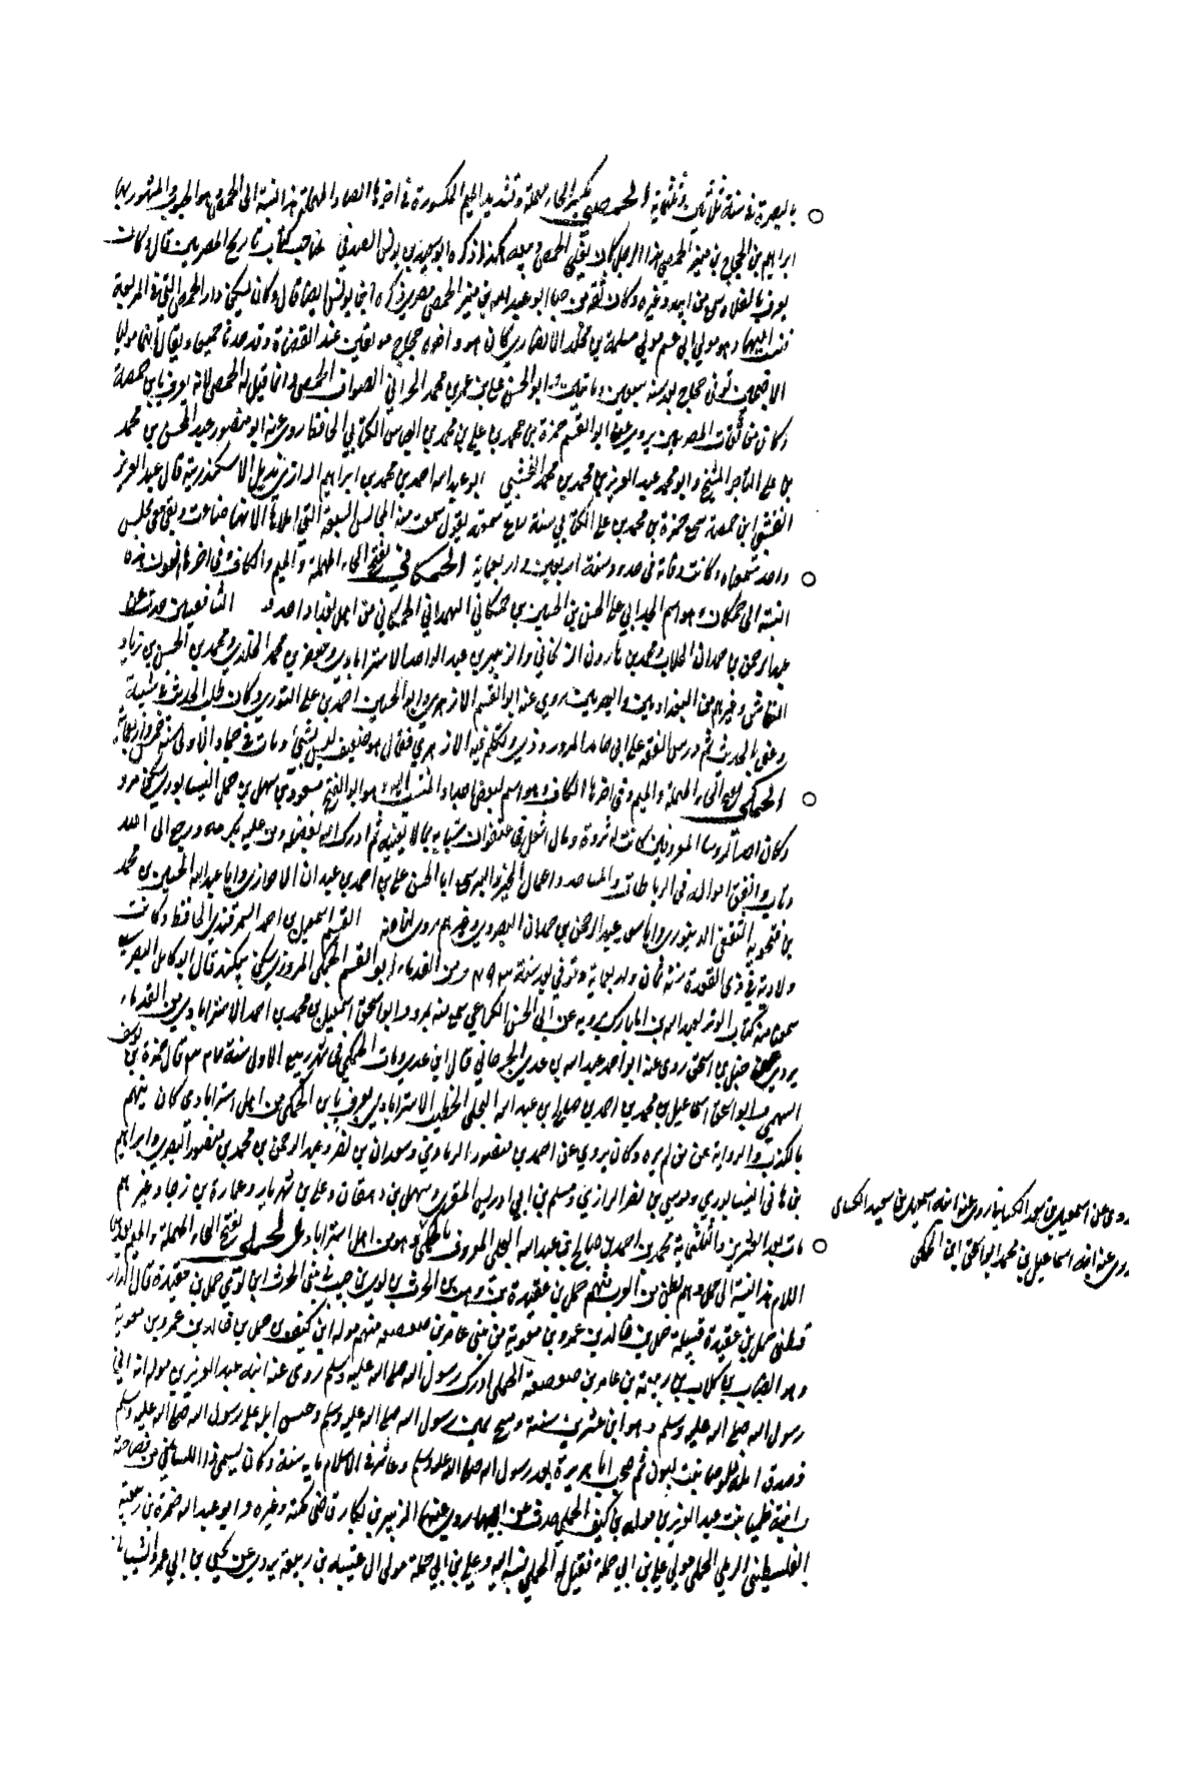 بالبصرة في سنة ثلاثين وثلثماية الحمصي بكسر الحاء المهملة وتشديد الميم المكسورة وفي اخرها الصاد المهملة هذه النسبة الى الحمص وهو الحبوب والمشهور بها
ابراهيم بن الحجاج بن منير الحمصي هذا الرجل كان يقلي الحمص ويبيعه هكذا ذكره ابو سعيد بن يونس الصدفي صاحب كتاب تاريخ المصريين قال وكان
يعرف بالقلاء روى عن ابيه وغيره وكان ثقة من ابو عبد الله بن منير الحمصي مصري ذكره ابن يونس ايضا قال وكان يسكن دار الحمص التي في المربعة
فنسب اليها وهو مولى مولى مسلمة بن مخلد الانصاري كان هو واخوه حجاج عند القضاة وقد حدثا جميعا ويقال انهما مولى
توفي حجاج بعد سنة سبعين وماتين ابو الحسن علي بن عمر بن محمد الحراني الصواف الحمصي وانما قيل له الحمصي لانه يعرف بابن حمصة
وكان من ثقات المصريين يروي عن ابو القسم حمزة بن محمد بن علي بن محمد بن العباس الكناني الحافظ روى عنه ابو منصور عبد المحسن بن محمد
بن علي التاجر الشيخ وابو محمد عبد العزيز بن محمد بن محمد النخشبي ابو عبد الله احمد بن محمد بن ابراهيم الرازي نزيل الاسكندرية قال عبد العزيز
النخشبي ابن حمصة سمع حمزة بن محمد بن علي الكناني سنة سبع سمعته يقول سمعت منه المجالس السبعة التي املاها الا انها ضاعت وبقي معي مجلس
واحد وكانت وفاته في حدود سنة اربعين واربعماية الحمكاني بفتح الحاء المهملة والميم والكاف وفي اخرها نون هذه
النسبة الى حمكان وهو اسم لجد ابي علي الحسن بن الحسين بن حمكان الهمداني الحمكاني من اهل بغداد احد الشافعيين حدث عن
عبد الرحمن بن حمدان الجلاب ومحمد بن هارون الزنجاني والزبير بن عبد الواحد الاستراباذي وجعفر بن محمد الخلدي ومحمد بن الحسن بن زياد
النقاش وغيرهم من البغداديين والبصريين روى عنه ابو القسم الازهري وابو الحسين احمد بن علي التوزي وكان طلب الحديث في شبيبته
وعني بالحديث ثم درس الفقه على ابي حامد المروروذي وتكلم فيه الازهري فقال هو ضعيف ليس بشيء ومات في جمادى الاولى سنة خمس واربعماية
الحمكي بفتح الحاء المهملة والميم وفي اخرها الكاف وهو اسم لبعض اجداد المنتسب اليه وهو ابو الفتح مسعود بن سهل بن حمك النيسابوري سكن مرو
وكان احد الروسا المعروفين كانت له ثروة ومال اشتغل في عنفوان شبابه بما لا يعنيه ثم ادرك الله بفضله ومن عليه بكرمه ورجع الى الله
وتاب وانفق امواله في الرباطات والمساجد واعمال الخير والبر سمع ابا الحسن علي بن احمد بن عبدان الاهوازي وابا عبد الله الحسين بن محمد
بن فنجويه الثقفي الدينوري وابا سعد عبد الرحمن بن حمدان النصروي وغيرهم روى لنا عنه القسم اسمعيل بن احمد السمرقندي الحافظ وكانت
ولادته في ذي القعدة سنة ثمان وتوفي بعد سنة ومن القدماء ابو القسم الحمكي المروزي سكن بيكند قال ابو كامل البصري
سمعنا منه كتاب لعبد الله بن المبارك يرويه عن ابي الحسن الكراعي سمع منه بمرو وابو اسحق اسمعيل بن محمد بن احمد الاستراباذي من القدماء
يروي عن حنبل بن اسحق روى عنه ابو احمد عبد الله بن عدي الجرجاني قال ابن عدي ومات الحمكي في شهر ربيع الاول سنة قال حمزة بن يوسف
السهمي ابو اسحق اسماعيل بن محمد بن احمد بن صالح بن عبد الله البجلي الخطيب الاستراباذي يعرف بابن الحمكي من اهل استراباذ كان يتهم
بالكذب والرواية عن من لم يره وكان يروي عن احمد بن منصور الرمادي وسعدان بن نصر وعبد الرحمن بن محمد بن منصور البصري وابراهيم
بن هاني النيسابوري وموسى بن نصر الرازي ومسلم بن ابي ادريس المقري وسهل بن دهقان وعلي بن شهريار وعمارة بن رجاء وغيرهم
مات بعد العشرين والثلثماية محمد بن احمد بن صالح بن عبد الله البجلي المعروف بالحمكي وهو من اهل استراباذ الحملي بفتح الحاء المهملة والميم بعدها
اللام هذه النسبة الى حمل وهم بطن من العرب منهم حمل بن عقيدة بن وهب بن الحرث بن لوي حمل بن عقيدة قال الدار
قطني حمل بن عقيدة قبيلة حمل بن خالد بن عمرو بن معوية من بني عامر بن صعصعة منهم مولة ابن كثيف بن حمل بن خالد بن عمرو بن معوية
وهو الضباب بن كلاب بن ربيعة بن عامر بن صعصعة الحملي ادرك رسول الله صلى الله عليه وسلم روى عنه ابنه عبد العزيز بن مولة انه اتى
رسول الله صلى الله عليه وسلم وهو ابن عشرين سنة ومسح يمين رسول الله صلى الله عليه وسلم ابله على رسول الله صلى الله عليه وسلم
فصدق ابله بنت لبون ثم صحب ابا هريرة بعد رسول الله صلى الله عليه وسلم وعاش في الاسلام ماية سنة وكان يسمى ذا اللسانين من فصاحته
وابنته ظمياء بنت عبد العزيز بن مولة بن كثيف الحملي حدثت عن ابيها روى عنها الزبير بن بكار قاضي مكة وغيره وابو عبد الله ضمرة بن ربيعة
الفلسطيني الرملي الحملي مولى علي بن ابي حملة فقيل له الحملي نسب اليه وعلي بن ابي حملة مولى ال عتبة بن ربيعة يروي عن يحيى بن ابي عمرو الشيباني
روى عن اسمعيل بن سعيد الكسائي روى عنه ابنه اسمعيل بن سعيد الكسائي
روى عنه ابنه اسماعيل بن محمد ابو اسحق ابن الحمكي